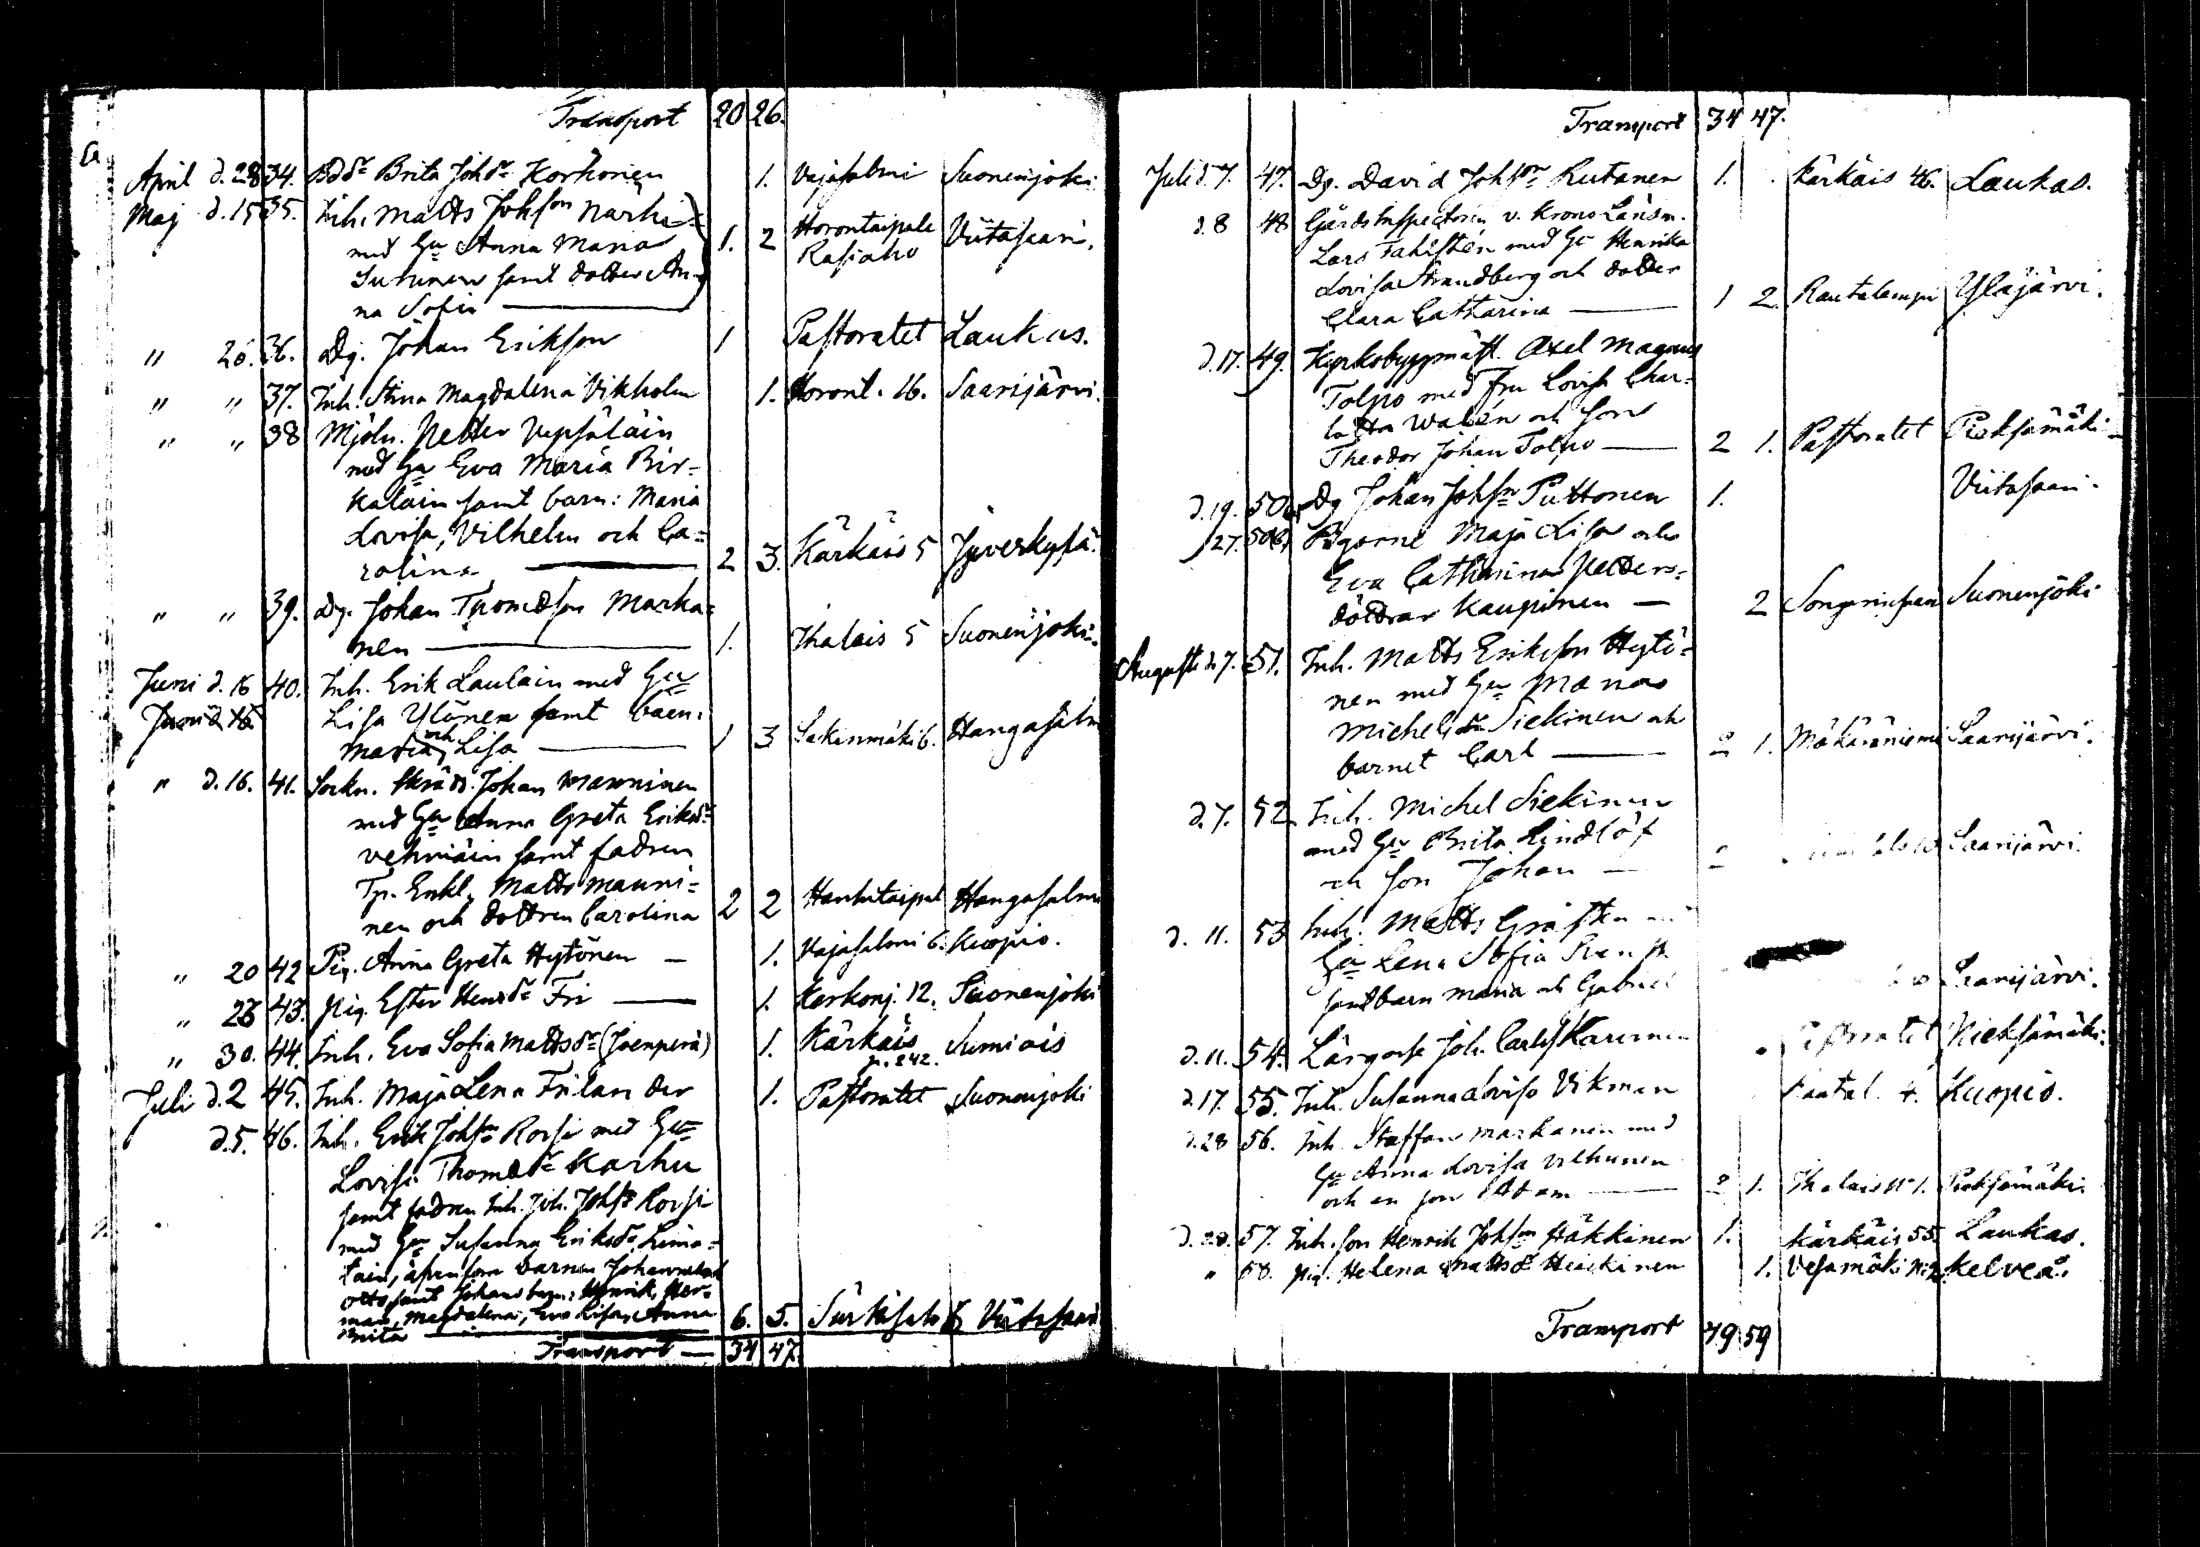 Transport 20 26.
April d. 28 34. Bdd:r Brita Johd:r Korhonen 1. Vajasalmi Suonenjoki
Maj d. 15 35. Inh. Matts Johsson Närhi
med Hu Anna Maria 1. 2 Horontaipale Viitasaari.
Sutinen samt dotter An- Rasiaho
na Sofia
" 26. 36. Dg. Johan Erikson 1 Pastoratet Laukas.
" " 37. Inh. Stina Magdalena Vikholm 1. Horont. 16. Saarijärvi.
" " 38 Mjöln. Petter Vepsäläin
med Hu Eva Maria Pir-
kaläin samt barn: Maria
Lovisa, Vilhelm och Ca-
rolina 2 3. Kärkäis 5 Jyveskylä.
" " 39. Dg. Johan Thomasson Marka-
nen 1. Ihalais 5 Suonenjoki.
Juni d. 16 40. Inh. Erik Laulain med Hu
Lisa Ylönen samt barn:
Maria och Lisa 1 3 Hangasalm
" d. 16. 41. Sockn. Skrädd. Johan Manninen
med Hu Anna Greta Eriksd:r
Vehviäin samt fadren
Enkl. Matts Manni-
nen och dottren Carolina 2 2 Hankataipal Hangasalmi
" 20 42 Pig. Anna Greta Hytönen 1. Vajasalmi 6. Kuopio.
" 23 43. Pig. Ester Henrd:r Fri 1. Kerkonj. 12. Suonenjoki
" 30. 44. Inh. Eva Sofia Mattsd:r (Joenperä) 1. Kärkäis Sumiais
p. 242.
Juli d. 2 45. Inh. Maja Lena Frilander 1. Pastoratet Suonenjoki
d. 5. 46. Inh. Erik Johs:n Rossi med Hu
Lovisa Thomasd:r Karhu
samt fadren Inh. Joh. Johs:n Rossi
med Hu Susanna Eriksd:r
äfvensom barnen
Otto samt Johans barn: Henrik, Her-
man, Magdalena, Eva Lisa, Anna 6. 5. Viitasaari
Brita
Transport 34 47.
Transport 34 47.
Juli d. 7. 47. Dg. David Johs:n Rutanen 1. Kärkäis 46. Laukas.
d. 8 48 Gårds Inspectorn v. Krono Länsm.
Lars Fahlstén med Hu Henrika
Lovisa Strandberg och dotter
Clara Catharina 1 2. Rautalampi Yläjärvi.
d. 17. 49. Kyrkobyggmäst. Axel Magnus
Tolpo med Fru Lovisa Char-
lotta Walén och son
Theodor Johan Tolpo 2 1. Pastoratet Pieksämäki
d. 19. 50 a, Dg Johan Johs:n Puttonen 1. Viitasaari.
27. 50 b, Pigorne Maja Lisa och
Eva Catharina Petters-
döttrar Kaupinen 2 Suonenjoki
Augusti d. 7. 51. Inh. Matts Erikson Hytö-
nen med Hu
Michelsd:r Siekinen och
barnet Carl 2 1. Mäkäräniemi Saarijärvi.
d. 7. 52 Inh. Michel Siekinen
med Hu Brita Lindlöf
och son Johan Saarijärvi.
d. 11. 53 Inh. Matts
Hu Lena Sofia
samt barn Maria och Gabriel Saarijärvi.
d. 11. 54. Joh. Carls Pastoratet Pieksämäki.
d. 17. 55. Inh. Susanna Lovisa Vikman 4. Kuopio.
d. 28 56. Inh. Staffan Markanen med
Hu Anna Lovisa Vilhunen
och en son Adam 2 1. Ihalais N:1. Pieksämäki.
d. 28. 57. Inh. son Henrik Johs:on Häkkinen 1. Kärkäis 55. Laukas.
" 58. Pig. Helena Mattsd:r Heiskinen 1. Vesamäki Kelveå.
Transport 49 59